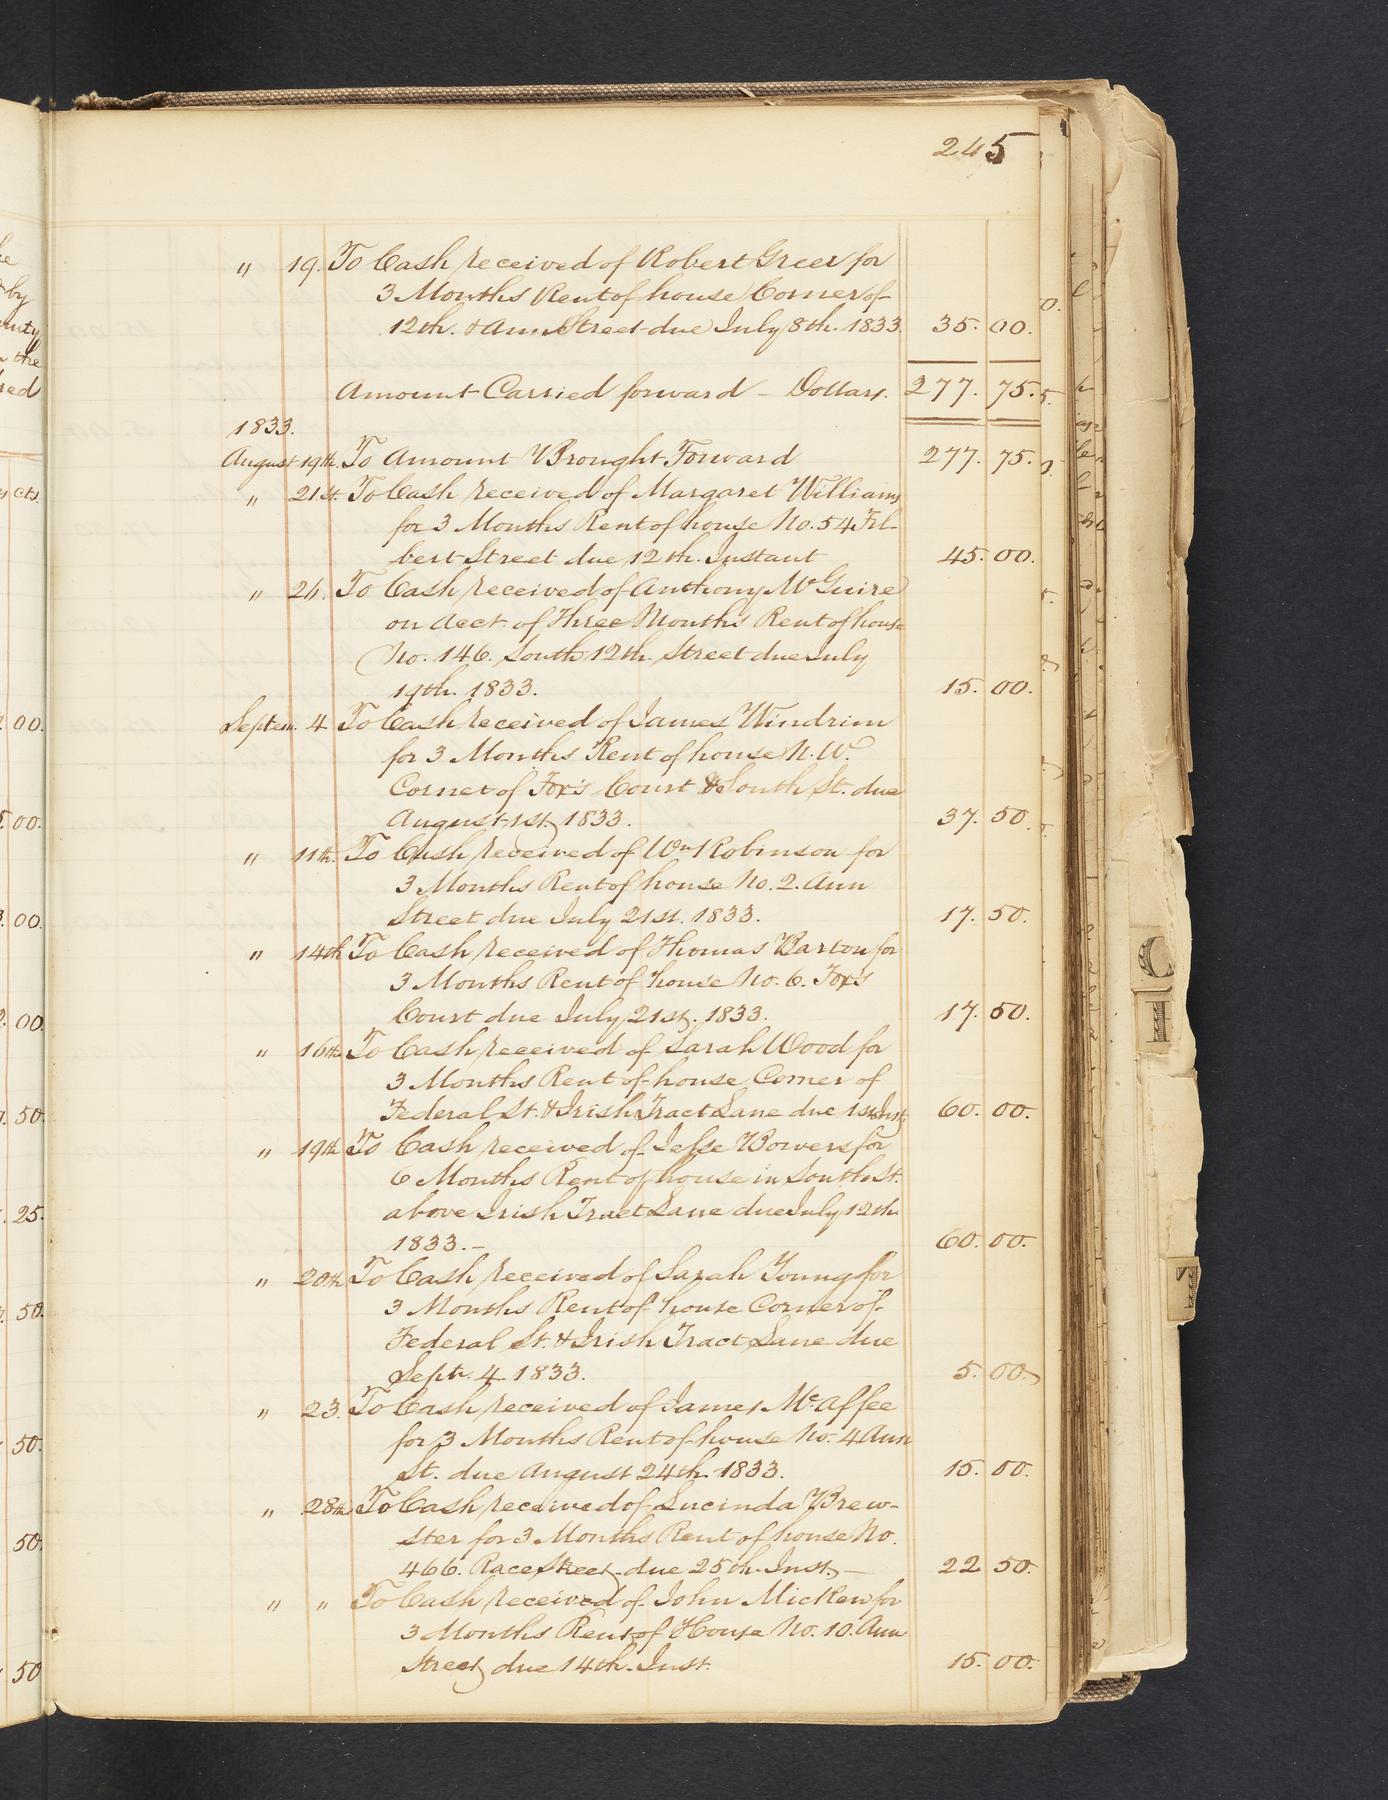 245
" 19. To Cash received of Robert Greer for
3 Months Rent of house Corner of
12th. & Ann Street due July 8th. 1833. 35. 00.
Amount Carried forward – Dollars. 277. 75.
1833.
August 19th. To Amount Brought Forward 277. 75.
" 21st. To Cash received of Margaret Williams
for 3 Months Rent of house No. 54 Fil-
bert Street due 12th. Instant 45. 00.
" 26. To Cash received of Anthony McGuire
on Acct. of Three Months Rent of house
No. 146. South 12th. Street due July
19th. 1833. 15. 00.
Septem. 4 To Cash received of James Windrim
for 3 Months Rent of house N. W.
Corner of Fox's Court & South St. due
August 1st. 1833. 37. 50.
" 11th. To Cash received of Wm Robinson for
3 Months Rent of house No. 2. Ann
Street due July 21st. 1833. 17. 50.
" 14th To Cash received of Thomas Barton for
3 Months Rent of house No. 6. Fox's
Court due July 21st. 1833. 17. 50.
" 16th To Cash received of Sarah Wood for
3 Months Rent of house Corner of
Federal St. & Irish Tract Lane due 1st Inst. 60. 00.
" 19th To Cash received of Jesse Bowers for
6 Months Rent of house in South St.
above Irish Tract Lane due July 12th
1833.– 60. 00.
" 20th To Cash received of Sarah Young for
3 Months Rent of house Corner of
Federal St. & Irish Tract Lane due
Septr. 4 1833. 5. 00.
" 23. To Cash received of James McAffee
for 3 Months Rent of house No. 4 Ann
St. due August 24th. 1833. 15. 00.
" 28th To Cash received of Lucinda Brew-
ster for 3 Months Rent of house No.
466. Race Street due 25th. Inst. – 22 50.
" " To Cash received of John Micken for
3 Months Rent of House No. 10. Ann
Street due 14th. Inst. 15. 00.